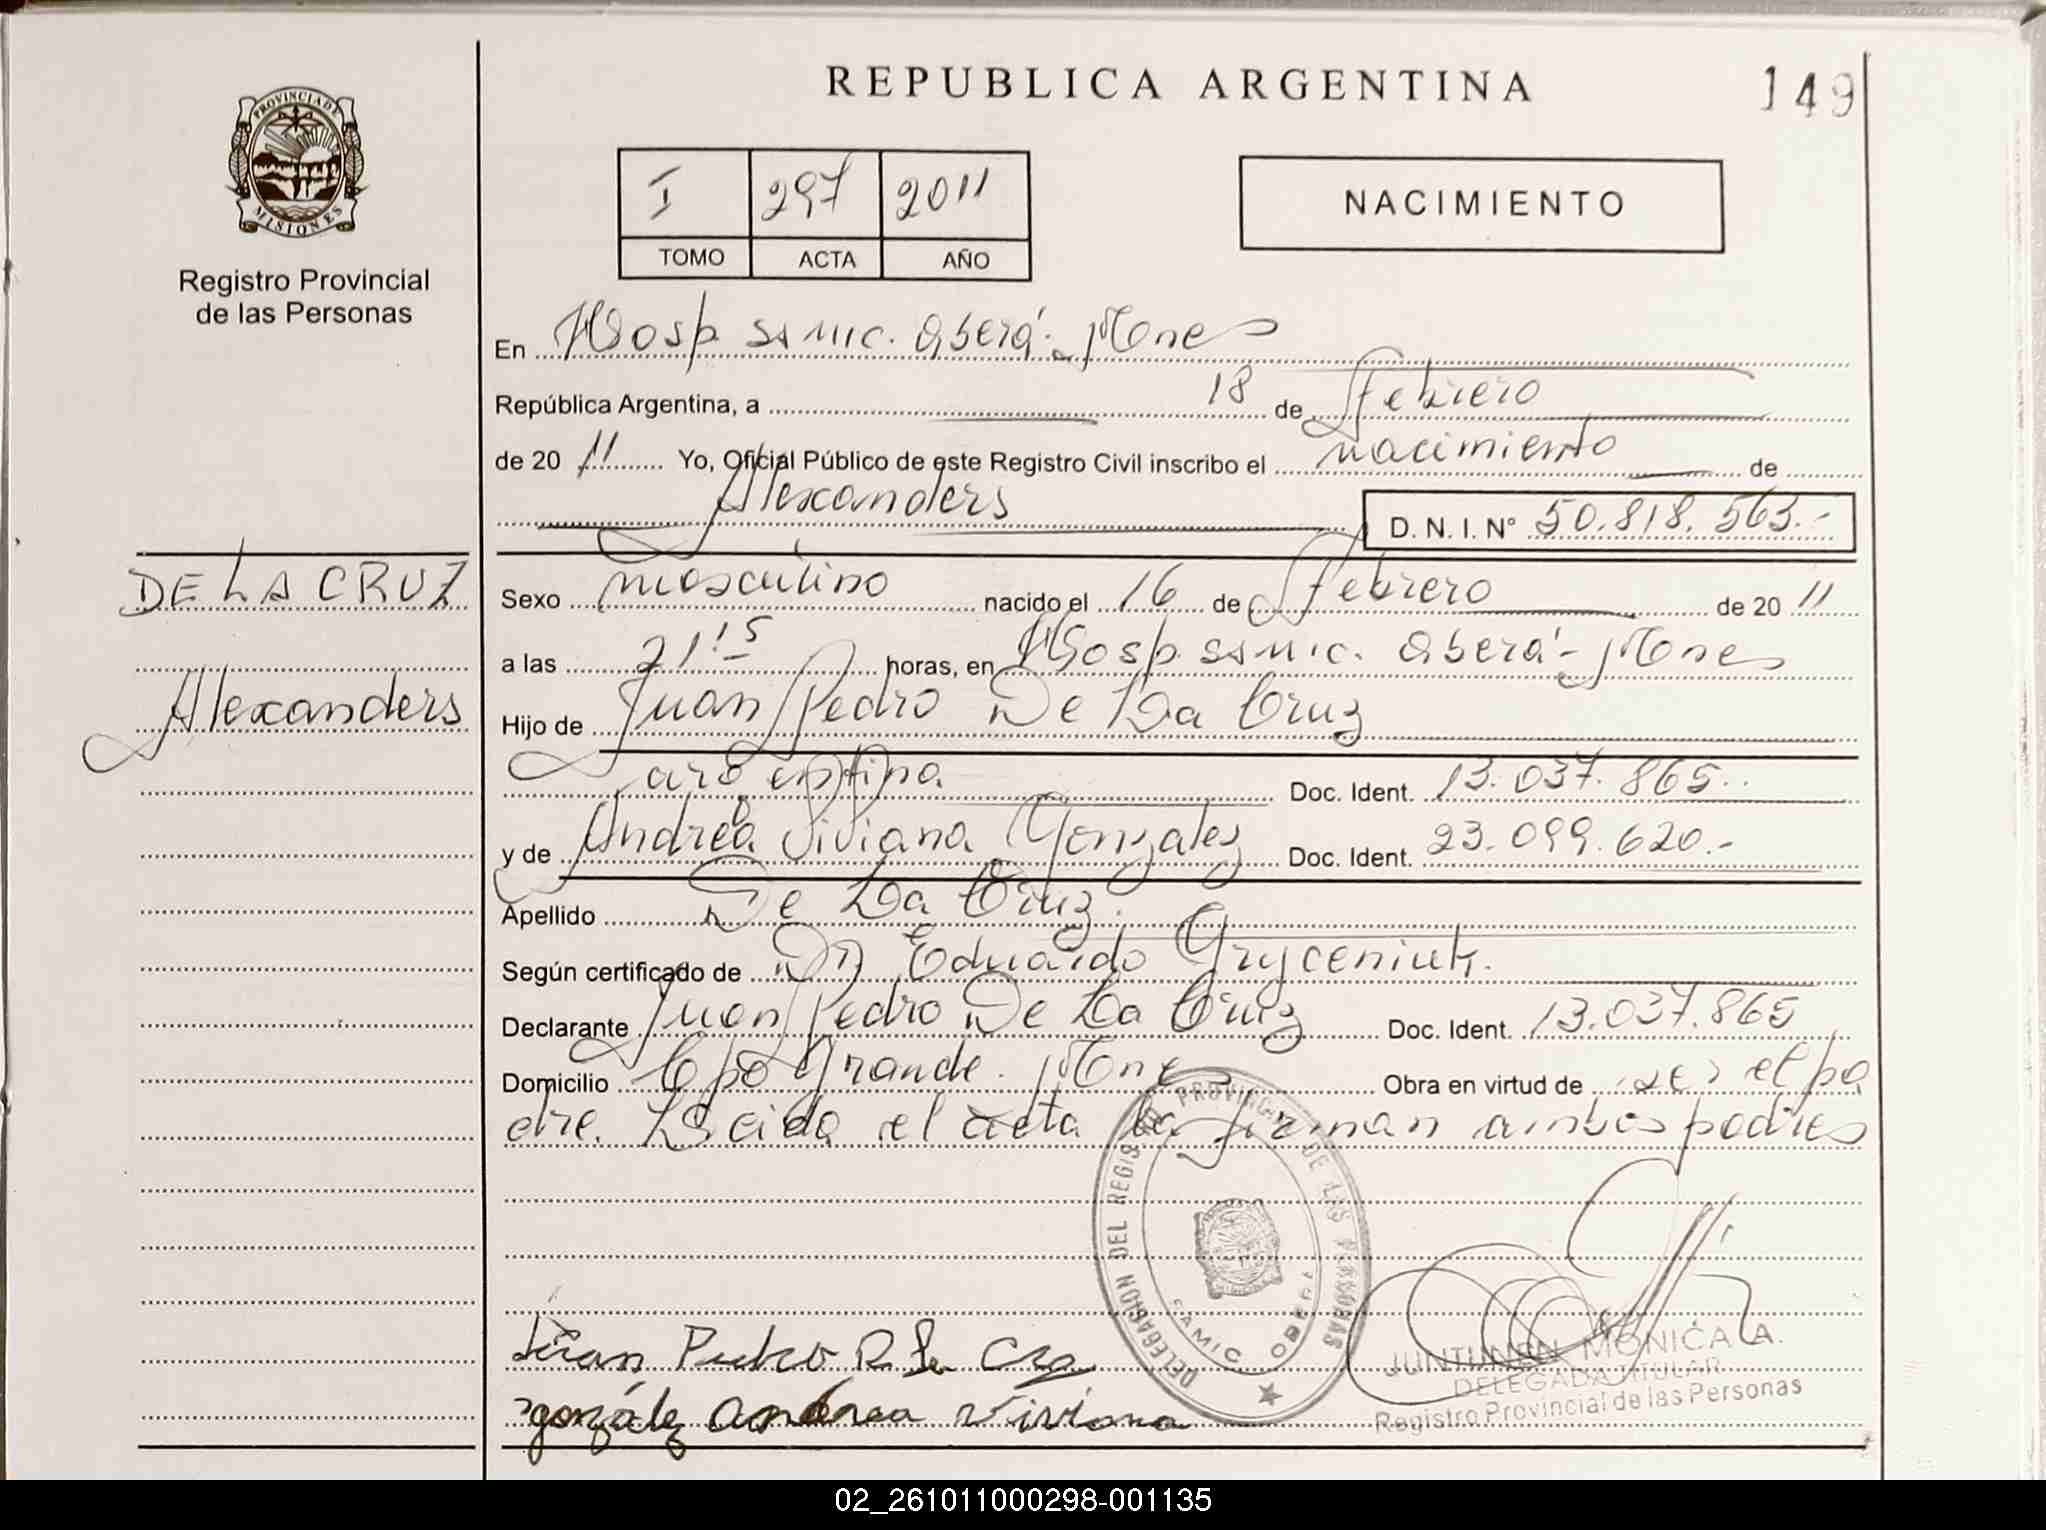 REPUBLICA ARGENTINA
149
PROVINCIA DE
MISIONES
Registro Provincial
de las Personas
I 297 2011
TOMO ACTA AÑO
NACIMIENTO
En Hosp. SAMIC. Oberá - Mnes
República Argentina, a 18 de Febrero
de 20 11 Yo, Oficial Público de este Registro Civil inscribo el nacimiento de
Alexanders D. N. I. N° 50.818.563.-
DE LA CRUZ
Alexanders
Sexo masculino nacido el 16 de Febrero de 20 11
a las 21:15 horas, en Hosp. SAMIC. Oberá - Mnes
Hijo de Juan Pedro De La Cruz
argentina Doc. Ident. 13.037.865.-
y de Andrea Viviana Gonzalez Doc. Ident. 23.099.620.-
Apellido De La Cruz.
Según certificado de Dr Eduardo Gryceniuk.
Declarante Juan Pedro De La Cruz Doc. Ident. 13.037.865
Domicilio Cpo Grande. Mnes Obra en virtud de ser el pa
dre. Leida el acta la firman ambos padres
DELEGACION DEL REGISTRO PROVINCIAL DE LAS PERSONAS
SAMIC OBERA
Juan Pedro D La Cruz
gonzález Andrea Viviana
JUNTUNEN MONICA A.
DELEGADA TITULAR
Registro Provincial de las Personas
02_261011000298-001135